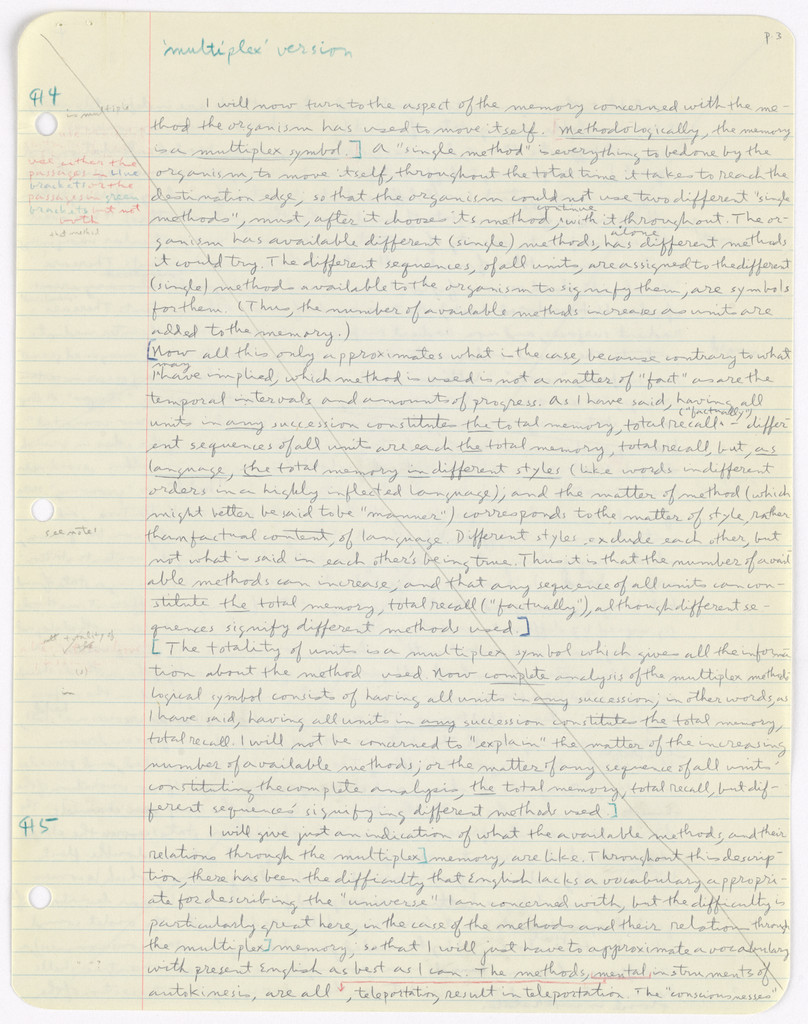 p. 3
'multiplex' version
¶4
I will now turn to the aspect of the memory concerned with the me-
thod the organism has used to move itself. Methodologically, the memory
is a multiplex symbol.] A "single method" is everything to be done by the
use either the
passages in blue
brackets or the
passages in green
brackets but not
both
organism, to move itself, throughout the total time it takes to reach the
destination edge, so that the organism could not use two different "single
methods", must, after it chooses its method, continue with it throughout. The or-
ganism has available different (single) methods, has different methods
it could try. The different sequences, of all units, are assigned to the different
(single) methods available to the organism to signify them, are symbols
for them. (Thus, the number of available methods increases as units are
added to the memory.)
[Now all this only approximates what is the case, because contrary to what
I may have implied, which method is used is not a matter of "fact" as are the
temporal intervals and amounts of progress. As I have said, having all
units in any succession constitutes the total memory, total recall ("factually") - differ-
ent sequences of all units are each the total memory, total recall, but, as
language, the total memory in different styles (like words in different
orders in a highly inflected language), and the matter of method (which
might better be said to be "manner") corresponds to the matter of style, rather
see note!
than factual content, of language. Different styles exclude each other, but
not what is said in each other's being true. Thus it is that the number of avail-
able methods can increase, and that any sequence of all units can con-
stitute the total memory, total recall ("factually"), although different se-
quences signify different methods used.]
[The totality of units is a multiplex symbol which gives all the informa-
tion about the method used. Now complete analysis of the multiplex methodo-
logical symbol consists of having all units in any succession; in other words, as
I have said, having all units in any succession constitutes the total memory,
total recall. I will not be concerned to "explain" the matter of the increasing
number of available methods; or the matter of any sequence of all units'
constituting the complete analysis, the total memory, total recall, but dif-
ferent sequences' signifying different methods used.]
¶5
I will give just an indication of what the available methods, and their
relations through the multiplex] memory, are like. Throughout this descrip-
tion, there has been the difficulty that English lacks a vocabulary appropri-
ate for describing the "universe" I am concerned with, but the difficulty is
particularly great here, in the case of the methods and their relations through
the multiplex] memory; so that I will just have to approximate a vocabulary
with present English as best as I can. The methods, mental, instruments of
autokinesis, are all , teleportation, result in teleportation. The "consciousnesses"